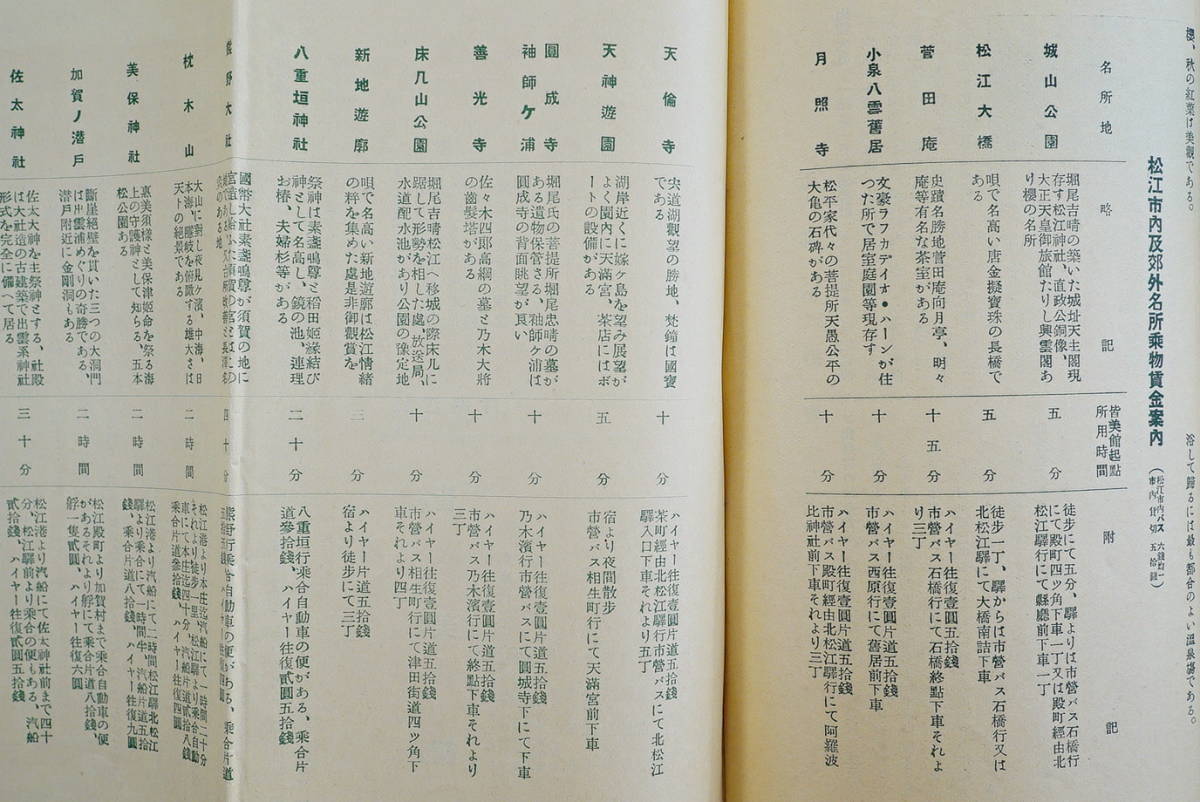 櫻、秋の紅葉は美觀である。
浴して歸るには最も都合のよい溫泉塲である。
松江市內及郊外名所乘物賃金案內
松江市內バス 六錢均一
市內貸切 五拾錢
名所地
略記
皆美館起點
所用時間
附記
城山公園
堀尾吉晴の築いた城址天主閣現
存す松江神社、直政公銅像、
大正天皇御旅館たりし興雲閣あ
り櫻の名所
五分
徒歩にて五分、驛よりは市營バス石橋行
にて殿町四ッ角下車一丁又は殿町經由北
松江驛行にて縣廳前下車一丁
松江大橋
唄で名高い唐金擬寶珠の長橋で
ある
五分
徒歩一丁、驛からは市營バス石橋行又は
北松江驛にて大橋南詰下車
菅田庵
史蹟名勝地菅田庵向月亭、明々
庵等有名な茶室がある
十五分
ハイヤー往復壹圓五拾錢
市營バス石橋行にて石橋終點下車それよ
り三丁
小泉八雲舊居
文豪ラフカデイオ・ハーンが住
つた所で居室庭園等現存す
十分
ハイヤー往復壹圓片道五拾錢
市營バス西原行にて舊居前下車
月照寺
松平家代々の菩提所天愚公平の
大亀の石碑がある
十分
ハイヤー往復壹圓片道五拾錢
市營バス殿町經由北松江驛行にて阿羅波
比神社前下車それより三丁
天倫寺
宍道湖觀望の勝地、梵鐘は國寶
である
十分
ハイヤー往復壹圓片道五拾錢
茶町經由北松江驛行市營バスにて北松江
驛入口下車それより五丁
天神遊園
湖岸近くに嫁ヶ島を望み展望が
よく園內に天滿宮、茶店にはボ
ートの設備がある
五分
宿より夜間散步
市營バス相生町行にて天滿宮前下車
圓成寺
袖師ケ浦
堀尾氏の菩提所堀尾忠晴の墓が
ある遺物保管さる、袖師ヶ浦は
圓成寺の背面眺望が良い
十分
ハイヤー往復壹圓片道五拾錢
乃木濱行市營バスにて圓城寺下にて下車
善光寺
佐々木四郎高綱の墓と乃木大將
の齒髮塔がある
十分
ハイヤー往復壹圓片道五拾錢
市營バス乃木濱行にて終點下車それより
三丁
床几山公園
堀尾吉晴松江へ移城の際床几に
踞して形勢を相した處、放送局、
水道配水池があり公園の豫定地
十分
ハイヤー往復壹圓片道五拾錢
市營バス相生町行にて津田街道四ッ角下
車それより四丁
新地遊廓
唄で名高い新地遊廓は松江情緖
の粹を集めた處是非御觀賞を
三分
ハイヤー片道五拾錢
宿より徒歩にて三丁
八重垣神社
祭神は素盞嗚尊と稻田姬緣結び
神として名高し、鏡の池、連理
お椿、夫婦杉等がある
二十分
八重垣行乘合自動車の便がある、乘合片
道參拾錢、ハイヤー往復貳圓五拾錢
熊野大社
國幣大社素盞嗚尊が須賀の地に
四十分
熊野行乘合自動車の便がある、乘合片道
枕木山
大山に對し夜見ヶ濱、中海、日
本海、隱岐を俯瞰する雄大さは
天下の絕景である
二時間
松江港より本庄迄汽船にて一時間二十分
それより徒歩一里、松江驛より乘合自動
車にて本庄迄四十分、汽船片道貳拾八錢
乘合片道參拾錢、ハイヤー往復四圓
美保神社
惠美須樣と美保津姬命を祭る海
上の守護神として知らる、五本
松公園ある
二時間
松江港より汽船にて二時間、松江驛北松江
驛より乘合にて一時間半、汽船片道五拾
錢、乘合片道八拾錢、ハイヤー往復九圓
加賀ノ潛戶
斷崖絕壁を貫いた三つの大洞門
は出雲浦めぐりの奇勝である、
潛戶附近に金剛洞もある
二時間
松江殿町より加賀村まで乘合自動車の便
があるそれより艀にて乘合片道八拾錢、
艀一隻貳圓、ハイヤー往復六圓
佐太神社
佐太大神を主祭神とする、社殿
は大社造の古建築で出雲系神社
形式を完全に備へて居る
三十分
松江港より汽船にて佐太神社前まで四十
分、松江驛前より乘合の便もある、汽船
貳拾錢、ハイヤー往復貳圓五拾錢